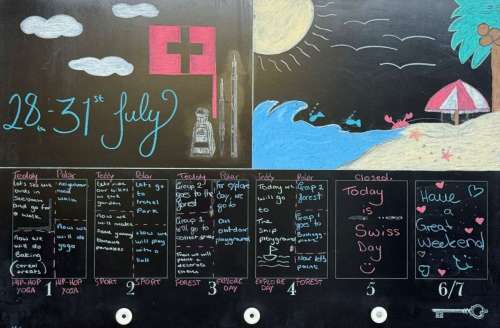 28th-31st July
Teddy
Let's
ends in
and go for
a walk
Now we
will do
Baking
(cereal
treats)
Polar
walk
Now we
will do
yoga
Teddy
our bikes
in the
garden
Now we
will make
banana
pancakes
Polar
Let's go
to
Polar
Park
Now we
will play
with a
ball
Teddy
Group 2
goes to the
forest
Group 1
will go to
Now we will
paint a
Polar
For explore
day, we
go to
an
outdoor
playground
Teddy
Today we
will go
to
the
Ship
playground
Polar
Group 2
forest
Group 1
goes to
Now let's
paint
Closed
Today
is
Swiss
Day
Have
a
Great
Weekend
1
2
3
4
5
6/7
HIP-HOP
YOGA
HIP-HOP
YOGA
SPORT
SPORT
FOREST
EXPLORE
DAY
EXPLORE
DAY
FOREST